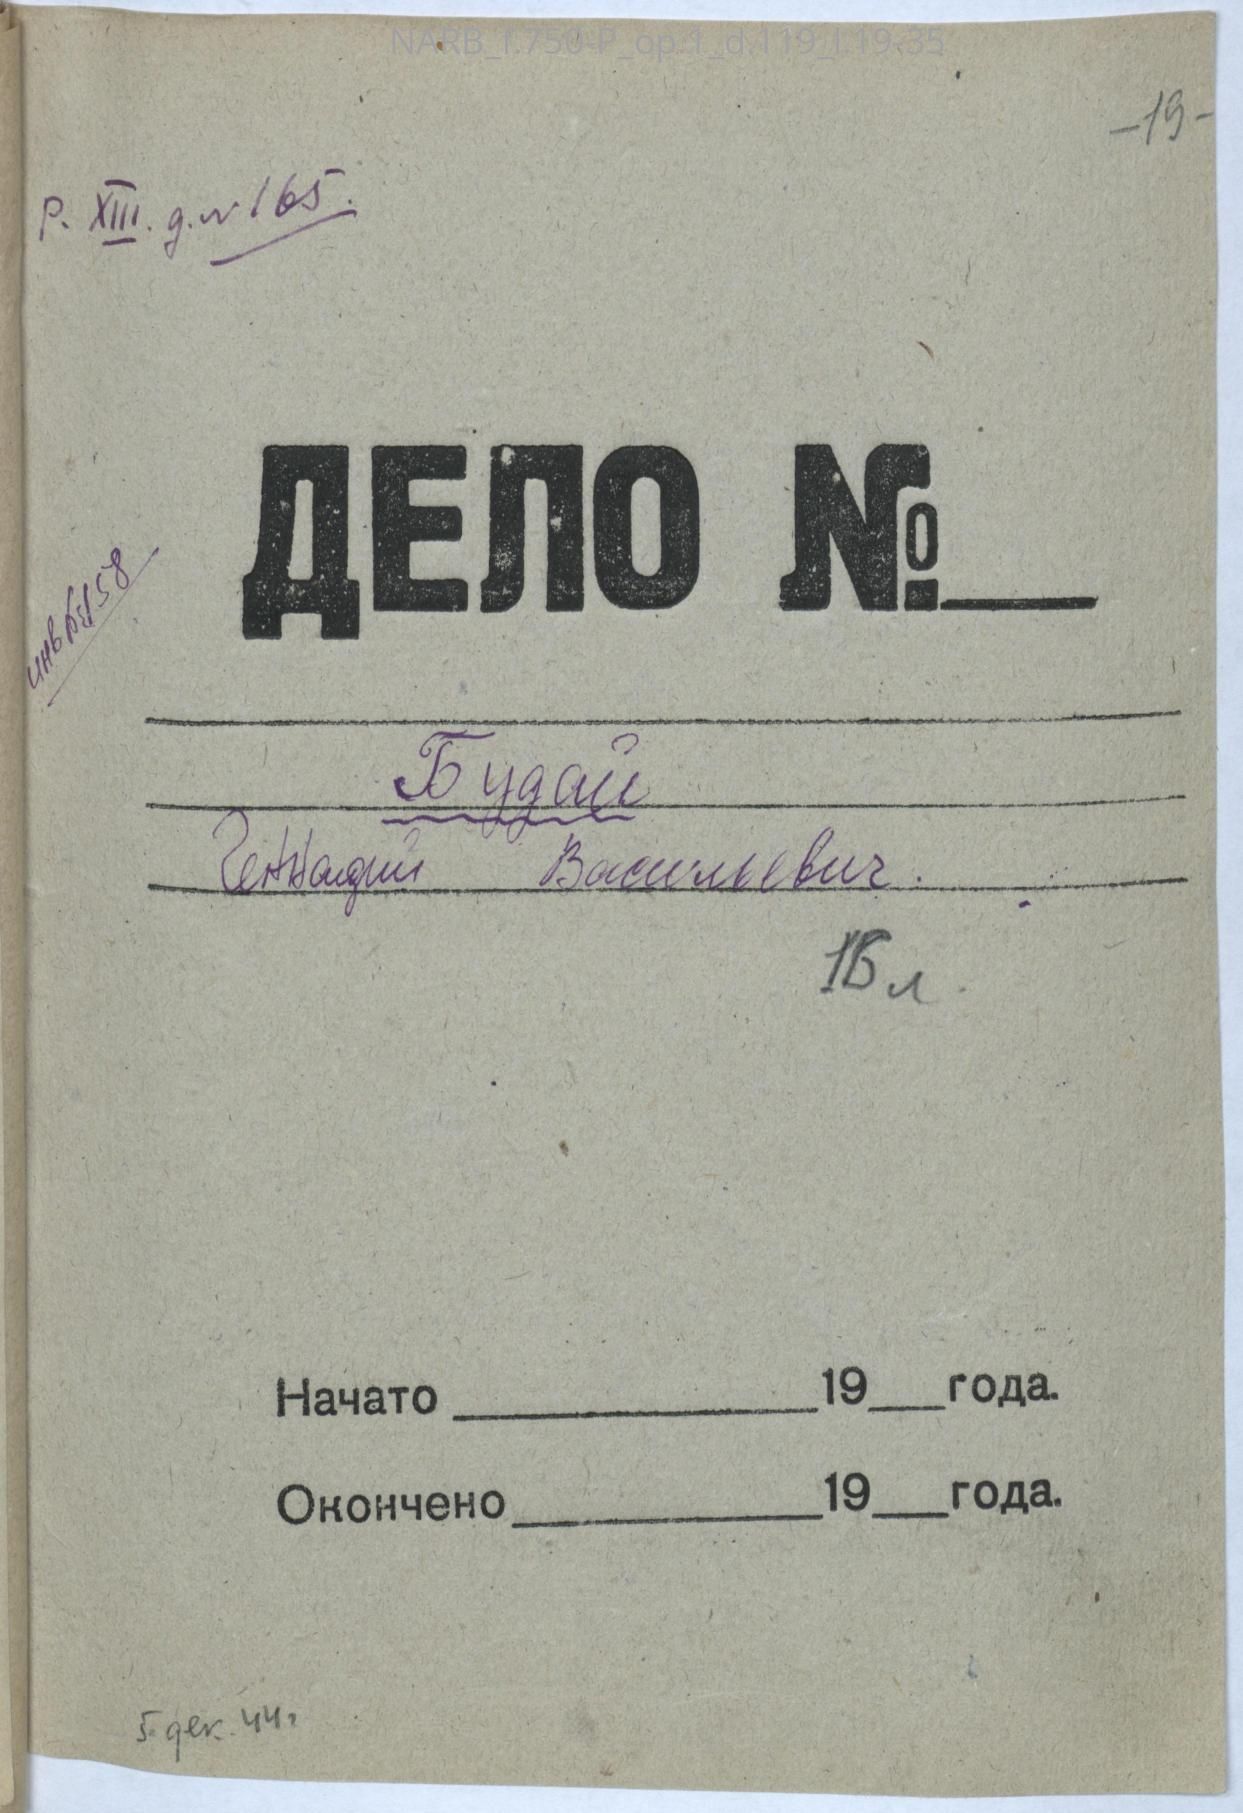 NARB_f.750-P_op.1_d.119_l.19-35
-19-
Р. XIII. д. № 165.
ДЕЛО №
инв № 158
Будай
Геннадий Васильевич.
16 л.
Начато 19 года.
Окончено 19 года.
5 дек. 44 г